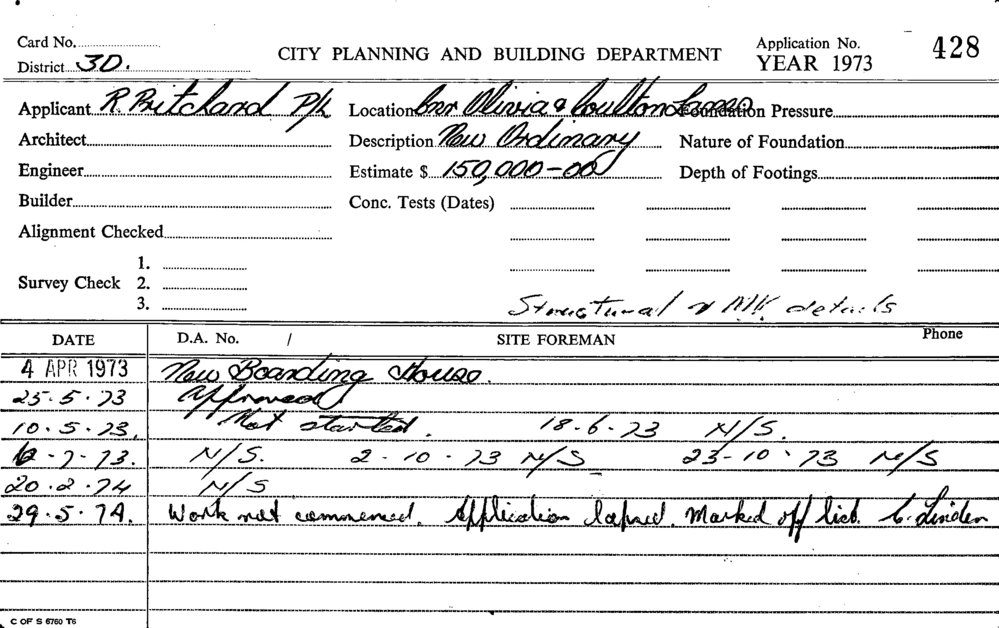 Card No. CITY PLANNING AND BUILDING DEPARTMENT Application No. 428
District 3D. YEAR 1973
Applicant R. Pritchard P/L Location Cnr Olivia & Coulton Lanes Foundation Pressure
Architect Description New Ordinary Nature of Foundation
Engineer Estimate $ 150,000-00 Depth of Footings
Builder Conc. Tests (Dates)
Alignment Checked
1.
Survey Check 2.
3.
Structural & details
DATE D.A. No. / SITE FOREMAN Phone
4 APR 1973 New Boarding House.
25.5.73 Approved
10.5.73. Not started. 18.6.73 N/S.
-7-73. N/S. 2-10-73 N/S 23-10-73 N/S
20.2.74 N/S
29.5.74. Work not commenced. Application lapsed. Marked off list. C. Linden
C OF S 6760 T6